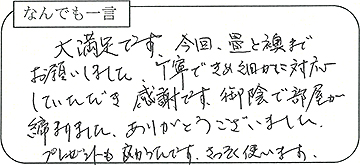 なんでも一言
大満足です、今回、畳と襖まで
お願いしました、丁寧できめ細かに対応
していただき 感謝です。御陰で部屋が
締まりました、ありがとうございました。
プレゼントも良かったです、さっそく使います